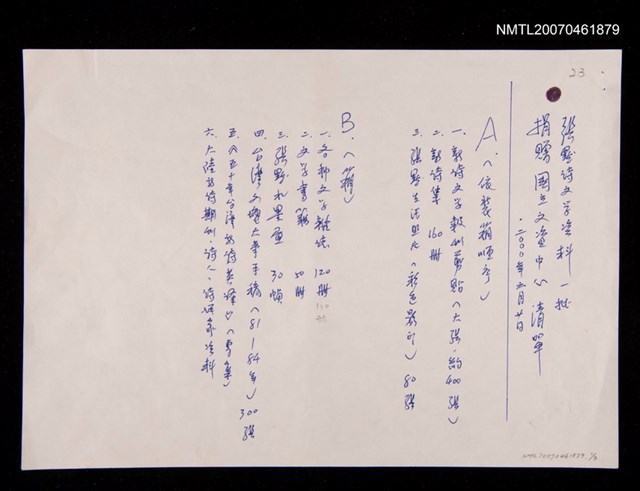 NMTL20070461879
23
張默詩文學資料一批
捐贈國立文資中心清單
二000年五月廿日
A、(依裝箱順序)
一、新詩文學報刊剪貼(大張、約400張)
二、新詩集 160冊
三、張默生活照片(彩色影印)80張
B、(箱)
一、各種文學雜誌 120冊
二、文學書籍 50冊
三、張默水墨畫 30幀
四、台灣文壇大事手稿(81—84年)300張
六、大陸新詩期刊、詩人、詩評家資料
NMTL20070461879. 1/3